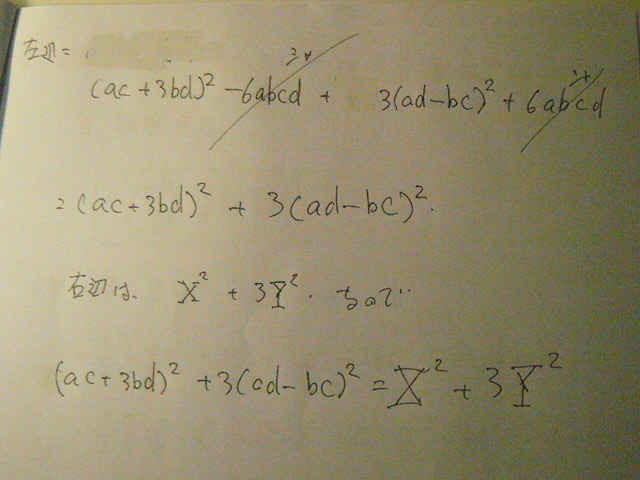 左辺=
(ac+3bd)² -6abcd + 3(ad-bc)² + 6abcd
=(ac+3bd)² + 3(ad-bc)².
右辺は、X²+3Y². なので‥
(ac+3bd)² +3(ad-bc)² = X² + 3Y²